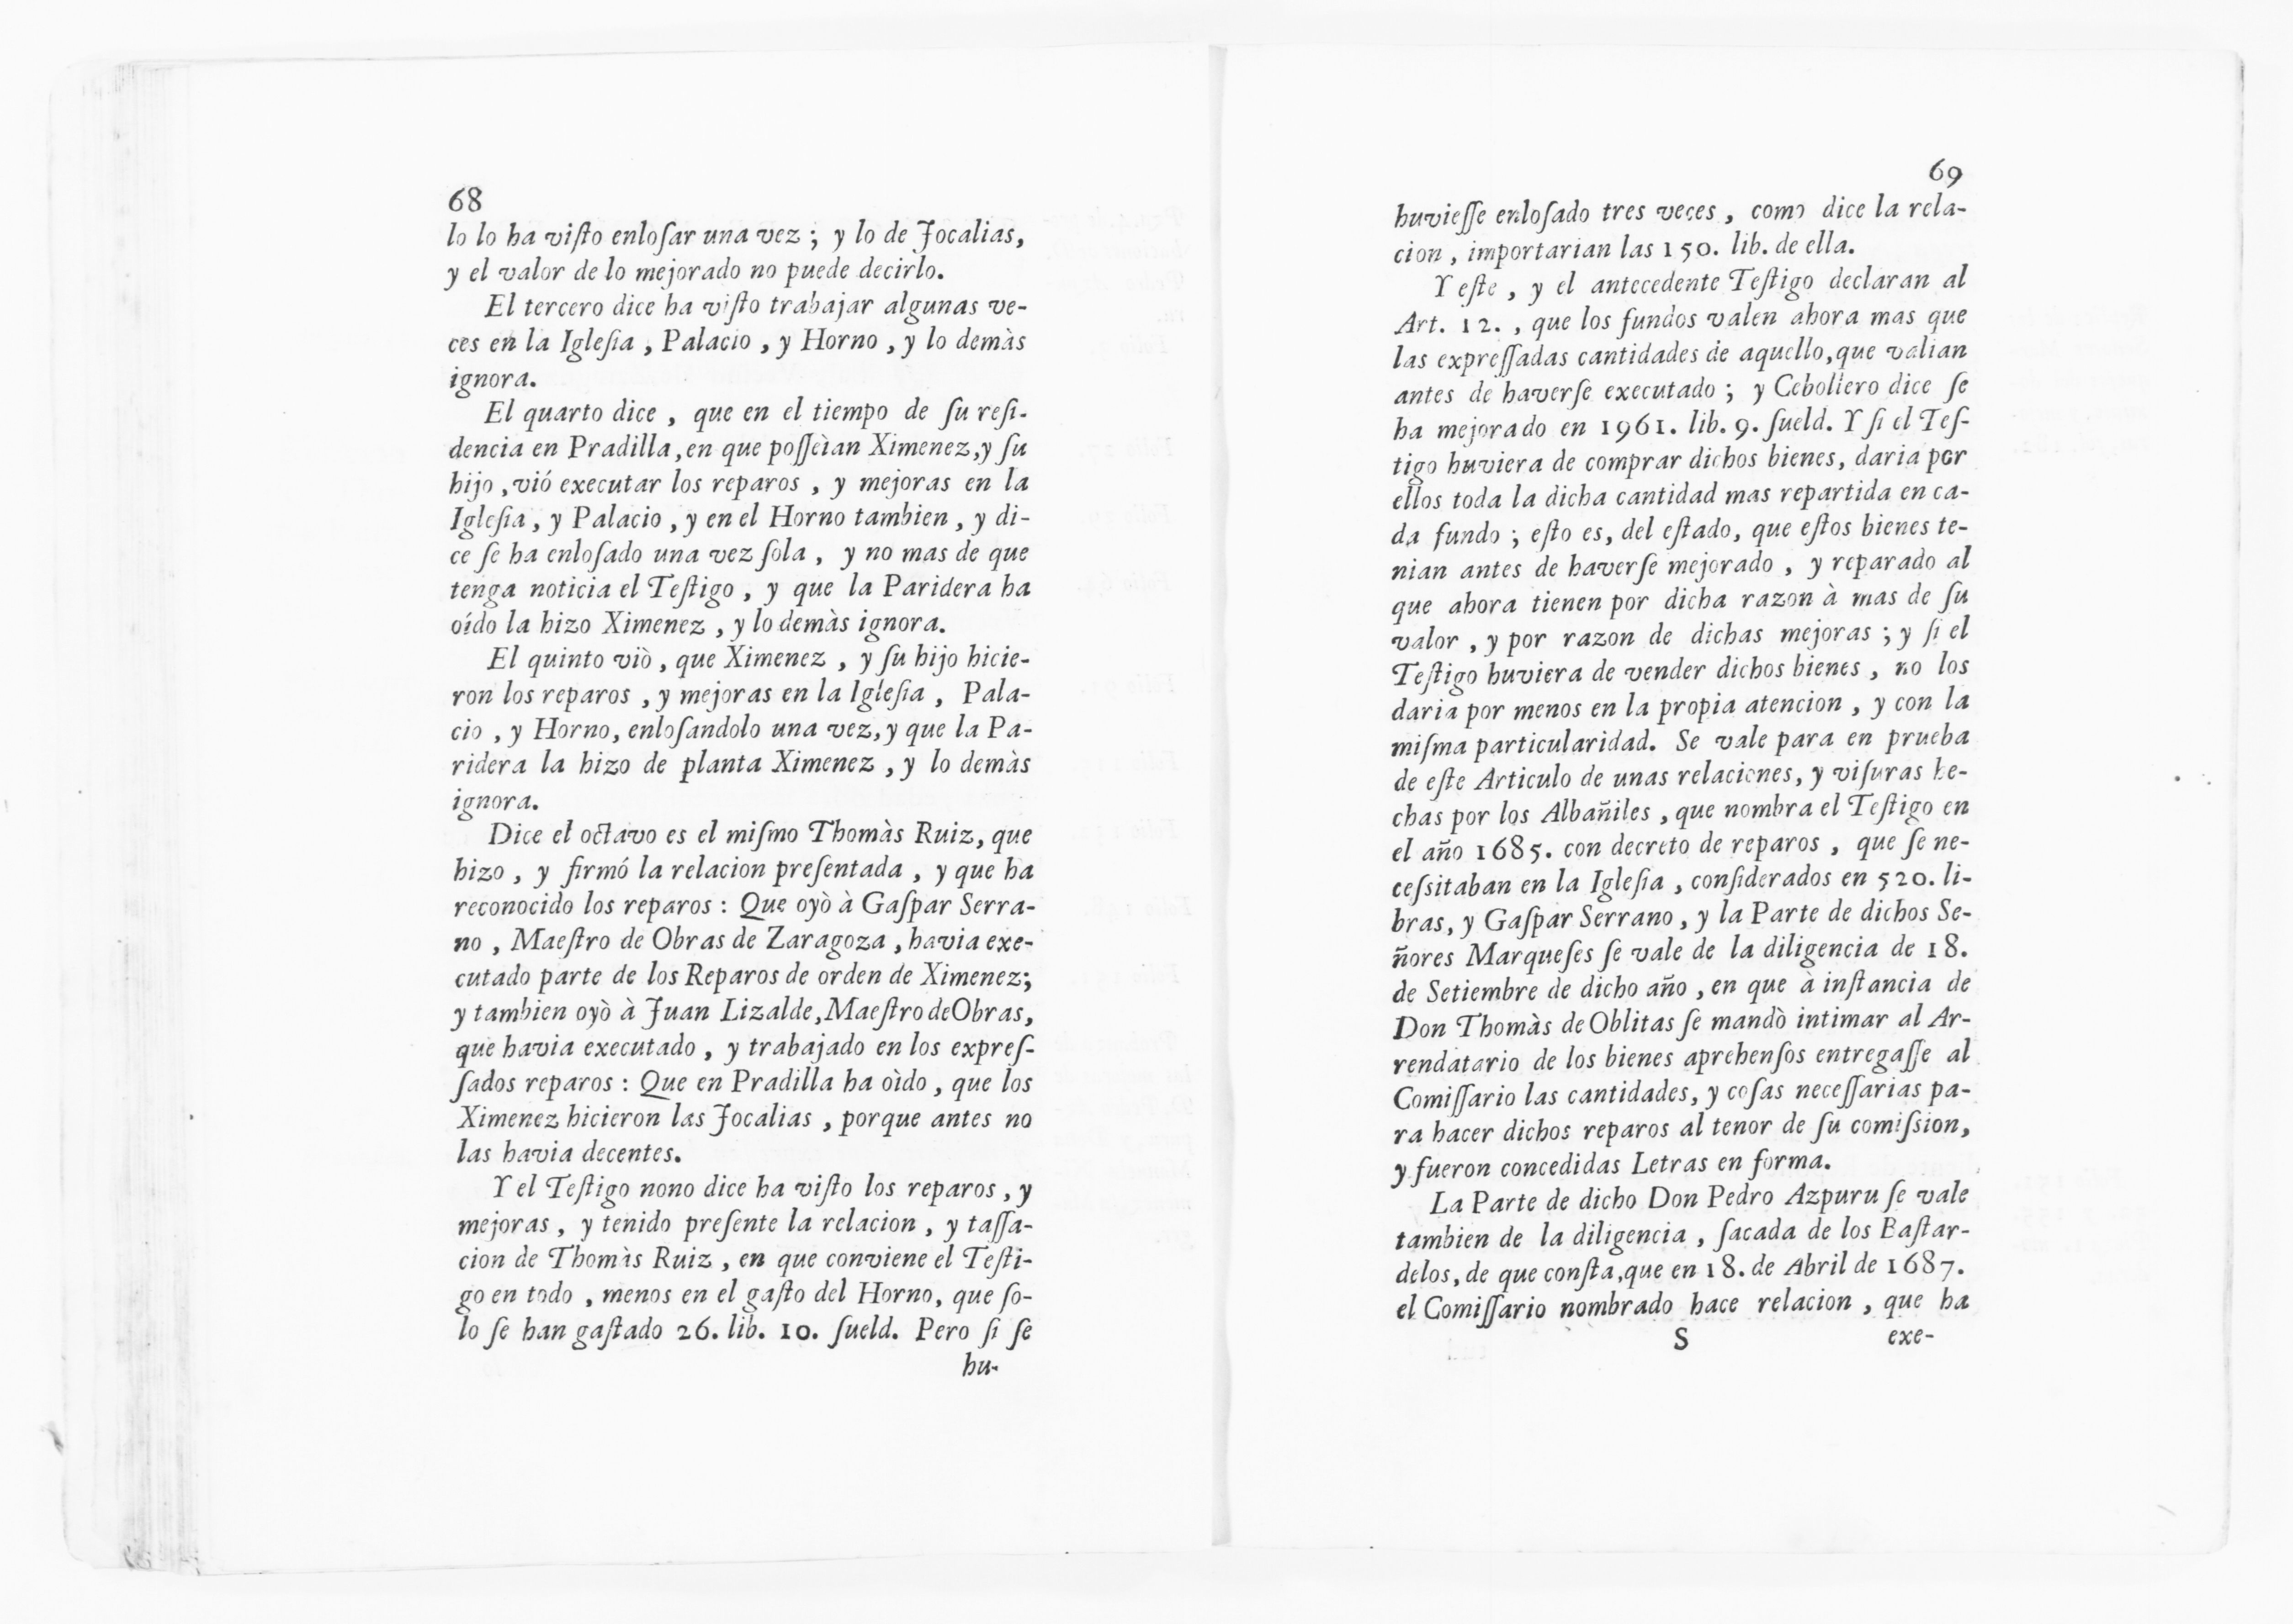 68
lo lo ha viſto enloſar una vez ; y lo de Jocalias,
y el valor de lo mejorado no puede decirlo.
El tercero dice ha viſto trabajar algunas ve-
ces en la Igleſia , Palacio , y Horno , y lo demàs
ignora.
El quarto dice , que en el tiempo de ſu reſi-
dencia en Pradilla, en que poſſeìan Ximenez, y ſu
hijo , vió executar los reparos , y mejoras en la
Igleſia , y Palacio , y en el Horno tambien , y di-
ce ſe ha enloſado una vez ſola , y no mas de que
tenga noticia el Teſtigo , y que la Paridera ha
oído la hizo Ximenez , y lo demàs ignora.
El quinto viò , que Ximenez , y ſu hijo hicie-
ron los reparos , y mejoras en la Igleſia , Pala-
cio , y Horno, enloſandolo una vez, y que la Pa-
ridera la hizo de planta Ximenez , y lo demàs
ignora.
Dice el octavo es el miſmo Thomàs Ruiz, que
hizo , y firmó la relacion preſentada , y que ha
reconocido los reparos : Que oyò à Gaſpar Serra-
no , Maeſtro de Obras de Zaragoza , havia exe-
cutado parte de los Reparos de orden de Ximenez;
y tambien oyò à Juan Lizalde, Maeſtro de Obras,
que havia executado , y trabajado en los expreſ-
ſados reparos : Que en Pradilla ha oìdo , que los
Ximenez hicieron las Jocalias , porque antes no
las havia decentes.
Y el Teſtigo nono dice ha viſto los reparos , y
mejoras , y tenido preſente la relacion , y taſſa-
cion de Thomàs Ruiz , en que conviene el Teſti-
go en todo , menos en el gaſto del Horno, que ſo-
lo ſe han gaſtado 26. lib. 10. ſueld. Pero ſi ſe
hu-
69
huvieſſe enloſado tres veces , como dice la rela-
cion , importarian las 150. lib. de ella.
Y eſte , y el antecedente Teſtigo declaran al
Art. 12. , que los fundos valen ahora mas que
las expreſſadas cantidades de aquello, que valian
antes de haverſe executado ; y Cebollero dice ſe
ha mejorado en 1961. lib. 9. ſueld. Y ſi el Teſ-
tigo huviera de comprar dichos bienes, daria por
ellos toda la dicha cantidad mas repartida en ca-
da fundo ; eſto es, del eſtado, que eſtos bienes te-
nian antes de haverſe mejorado , y reparado al
que ahora tienen por dicha razon à mas de ſu
valor , y por razon de dichas mejoras ; y ſi el
Teſtigo huviera de vender dichos bienes , no los
daria por menos en la propia atencion , y con la
miſma particularidad. Se vale para en prueba
de eſte Articulo de unas relaciones, y viſuras he-
chas por los Albañiles , que nombra el Teſtigo en
el año 1685. con decreto de reparos , que ſe ne-
ceſsitaban en la Igleſia , conſiderados en 520. li-
bras, y Gaſpar Serrano , y la Parte de dichos Se-
ñores Marqueſes ſe vale de la diligencia de 18.
de Setiembre de dicho año , en que à inſtancia de
Don Thomàs de Oblitas ſe mandò intimar al Ar-
rendatario de los bienes aprehenſos entregaſſe al
Comiſſario las cantidades, y coſas neceſſarias pa-
ra hacer dichos reparos al tenor de ſu comiſsion,
y fueron concedidas Letras en forma.
La Parte de dicho Don Pedro Azpuru ſe vale
tambien de la diligencia , ſacada de los Baſtar-
delos, de que conſta, que en 18. de Abril de 1687.
el Comiſſario nombrado hace relacion , que ha
S exe-